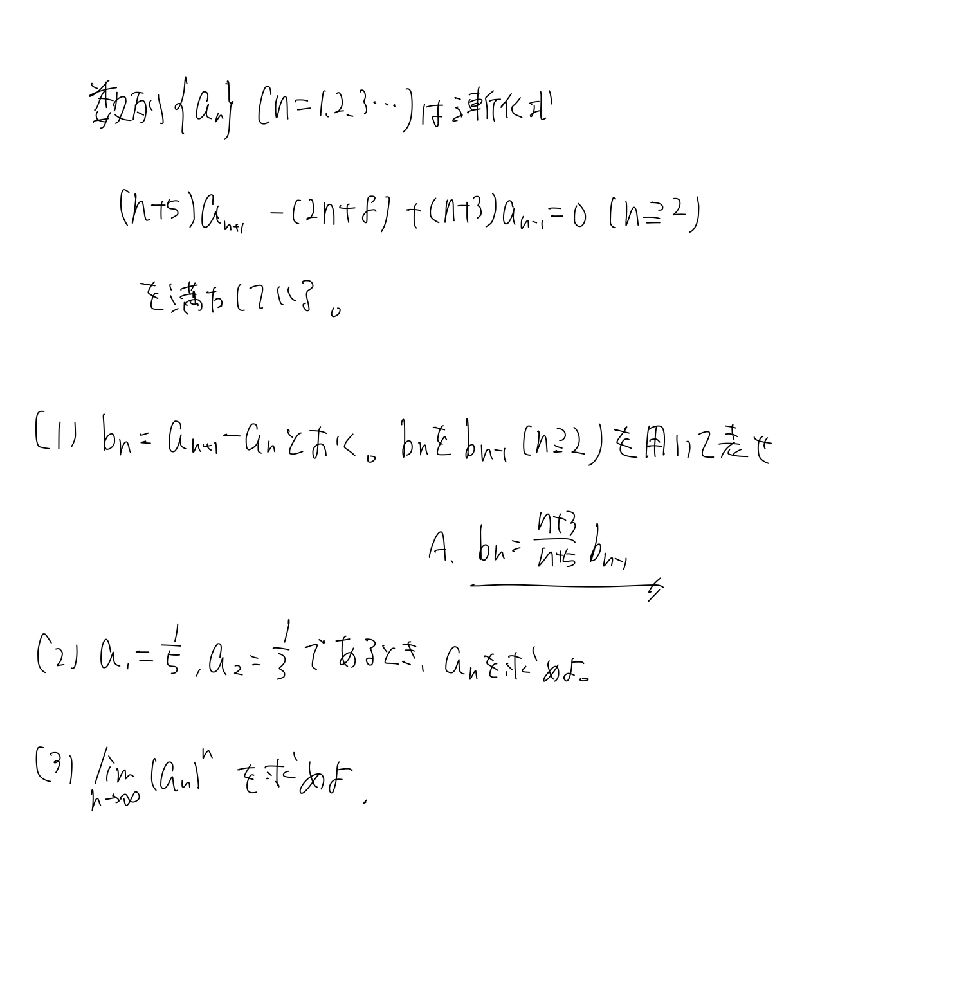 数列{aₙ} (n=1.2.3…)は漸化式
(n+5)aₙ₊₁ -(2n+8)+(n+3)aₙ₋₁=0 (n≧2)
を満たしている。
(1) bₙ= aₙ₊₁-aₙとおく。bₙをbₙ₋₁ (n≧2)を用いて表せ
A. bₙ= \frac{n+3}{n+5} bₙ₋₁
(2) a₁=\frac{1}{5}, a₂=\frac{1}{3}であるとき、aₙを求めよ。
(3) \lim_{n→∞} (aₙ)ⁿ を求めよ.